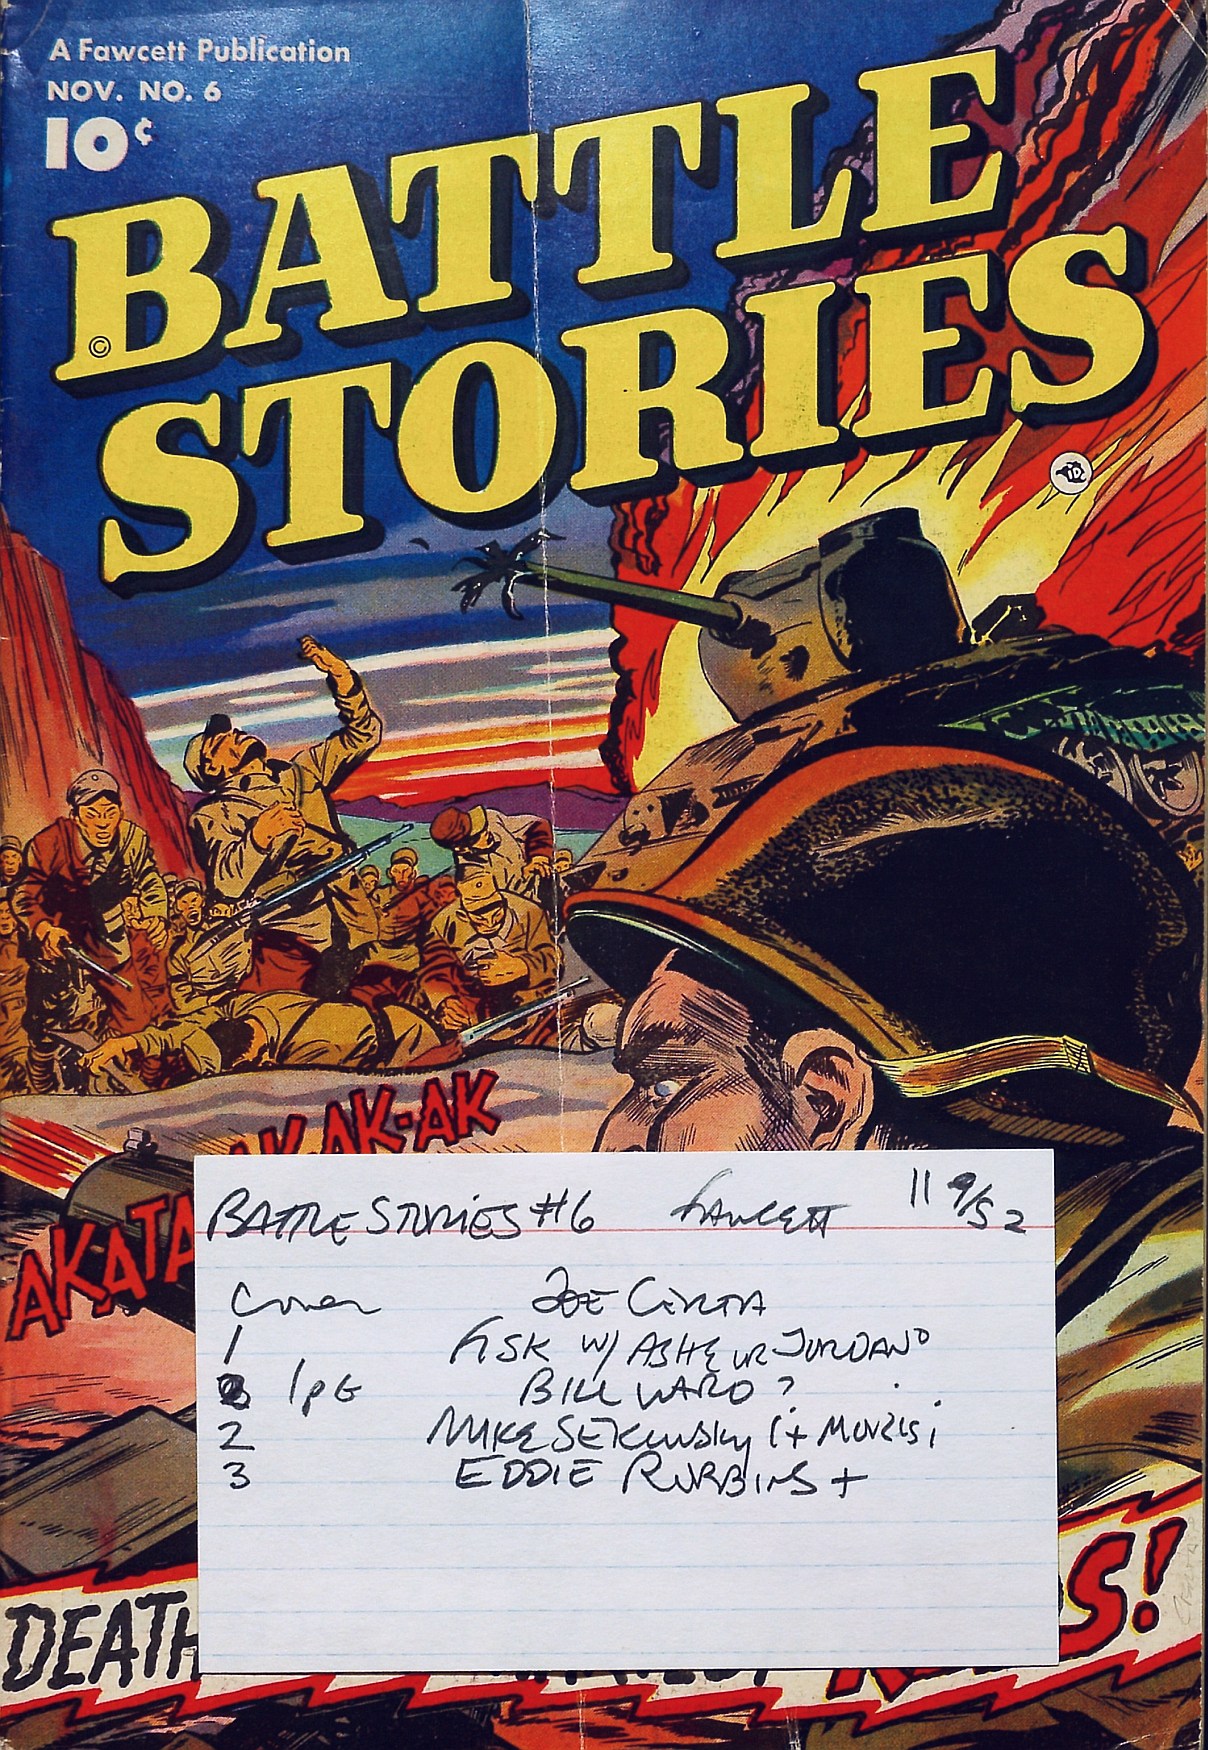 A Fawcett Publication
NOV. NO. 6
10¢
BATTLE
©
STORIES
AK-AK-AK
AKATA
BATTLE STORIES #6 FAWCETT 11 9/52
Cover JOE CERTA
1 FISK W/ ASHE OR JORDAN
1 PG BILL WARD ?
2 MIKE SEKOWSKY (+ MORRISI
3 EDDIE ROBBINS +
DEATH S!